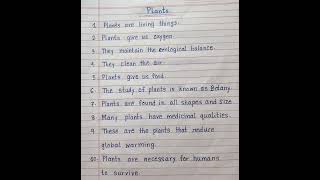 Plants
1. Plants are living things.
2. Plants give us oxygen.
3. They maintain the ecological balance.
4. They clean the air.
5. Plants give us food.
6. The study of plants is known as Botany.
7. Plants are found in all shapes and size.
8. Many plants have medicinal qualities.
9. These are the plants that reduce
global warming.
10. Plants are necessary for humans
to survive.